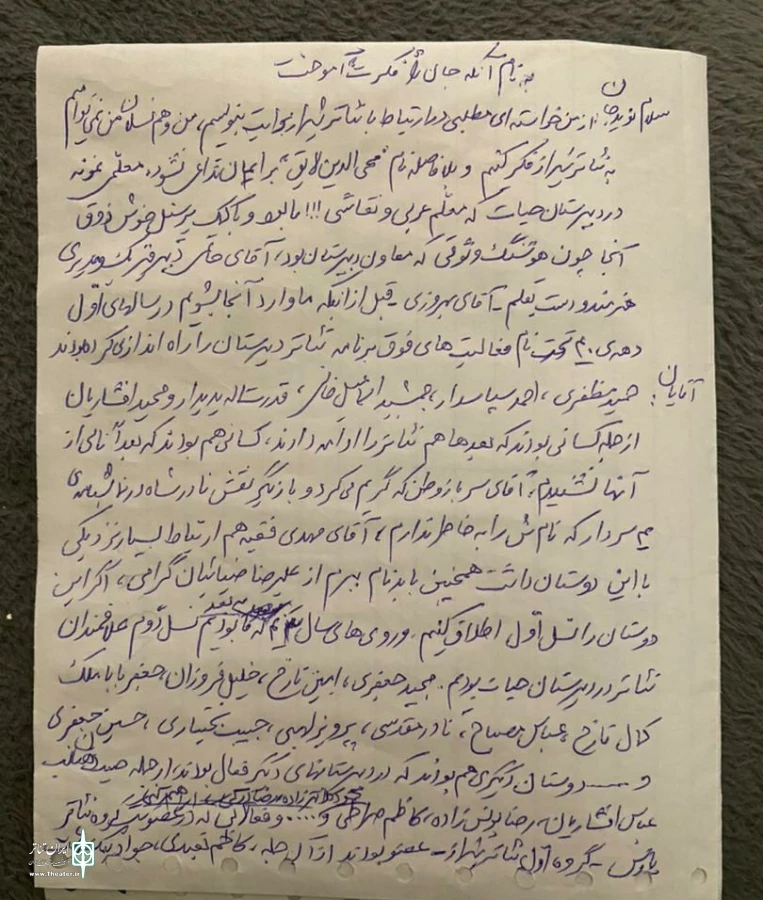 به نام آنکه جان را فکرت آموخت
سلام نوید جان از من خواسته ای مطلبی در ارتباط با تئاتر شیراز برایت بنویسم، من و هم نسلان من نمی توانیم
به تئاتر شیراز فکر کنیم و بلافاصله نام محی الدین لایق برایمان تداعی نشود، معلمی نمونه
در دبیرستان حیات که معلم عربی و نقاشی !!! با بلد و با کمک پرسنل خوش ذوق
آنجا چون هوشنگ وثوقی که معاون دبیرستان بود، آقای حاتمی دبیر فیزیک و مدیری
هنرمند و دست بقلم - آقای بهروزی - قبل از اینکه ما وارد آنجا بشویم در سالهای اول
دهه ی تحت نام فعالیت های فوق برنامه تئاتر دبیرستان را راه اندازی کرده بودند
آقایان: حمید مظفری، احمد سپاسدار، جمشید اسماعیل خانی، قدرت اله پدیدار و مجید افشاریان
از جمله کسانی بودند که بعدها هم تئاتر را ادامه دادند، کسانی هم بودند که بعداً نامی از
آنها نشنیدیم، آقای سرباز وطن که گریم می کرد و بازیگر نقش نادرشاه در نمایشنامه ی
سردار که نام ش را به خاطر ندارم، آقای مهدی فقیه هم ارتباط بسیار نزدیکی
با این دوستان داشت همچنین باید نام ببرم از علیرضا ضیائیان گرامی، اگر این
دوستان را نسل اول اطلاق کنیم. ورودی های سال به بعد که ما بودیم نسل دوم علاقمندان
تئاتر در دبیرستان حیات بودیم. مجید جعفری، امین تارخ، خلیل فروزان، جعفر بابا ملک
کمال تارخ، عباس مصباح، نادر مقدسی، پرویز لهبی، حبیب بختیاری، حسین جعفری
و ... دوستان دیگری هم بودند که در دبیرستانهای دیگر فعال بودند، از جمله
عباس افشاریان، رضا یونس زاده، کاظم صراطی و ..... و فعالانی که در عضویت گروه تئاتر
- گروه اول تئاتر شیراز - عضو بودند از آن جمله، کاظم تعبدی، جواد
ایران تئاتر
www.Theater.ir